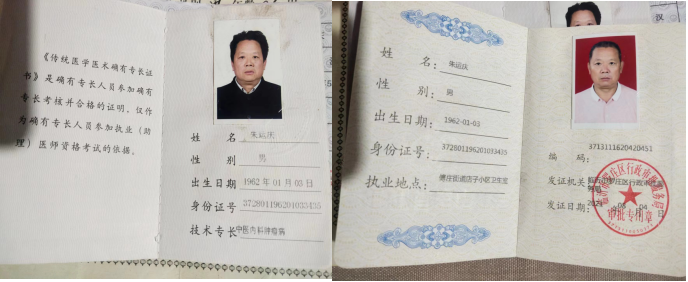 《传统医学医术确有专长证
书》是确有专长人员参加确有
专长考核并合格的证明，仅作
为确有专长人员参加执业（助
理）医师资格考试的依据。
姓 名 朱运庆
性 别 男
出生日期 1962年01月03日
身份证号 372801196201033435
技术专长 中医内科肿瘤病
姓 名：朱运庆
性 别：男
出生日期：1962-01-03
身份证号：372801196201033435
执业地点：傅庄街道店子小区卫生室
编 码：
3713111620420451
发证机关
庄区行政审批服务局
发证日期：
审批专用章